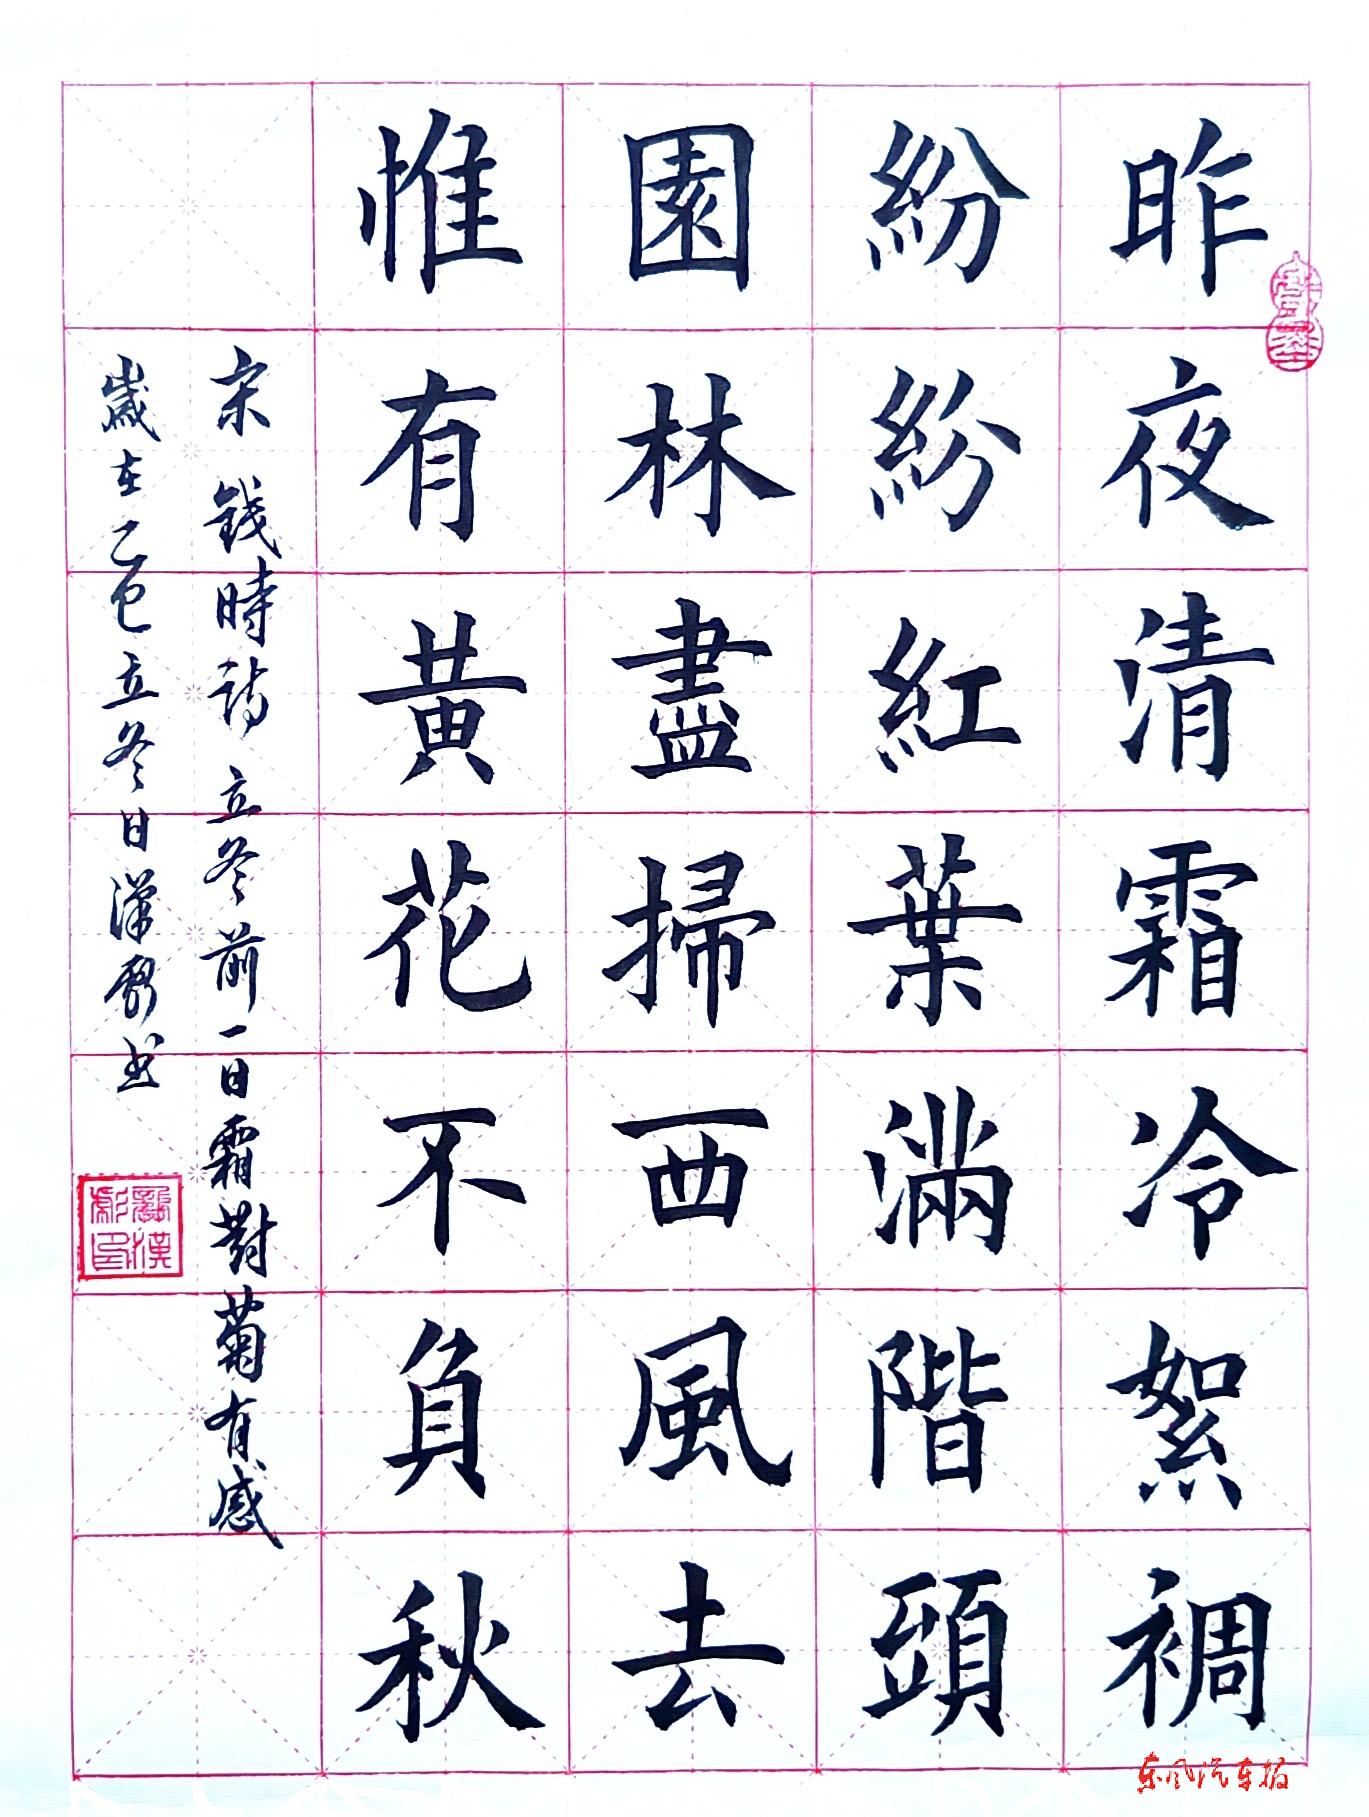 昨夜清霜冷絮裯
紛紛紅葉滿階頭
園林盡掃西風去
惟有黃花不負秋
宋 錢時詩 立冬前一日霜對菊有感
歲在乙巳立冬日漢卿书
东风汽车报